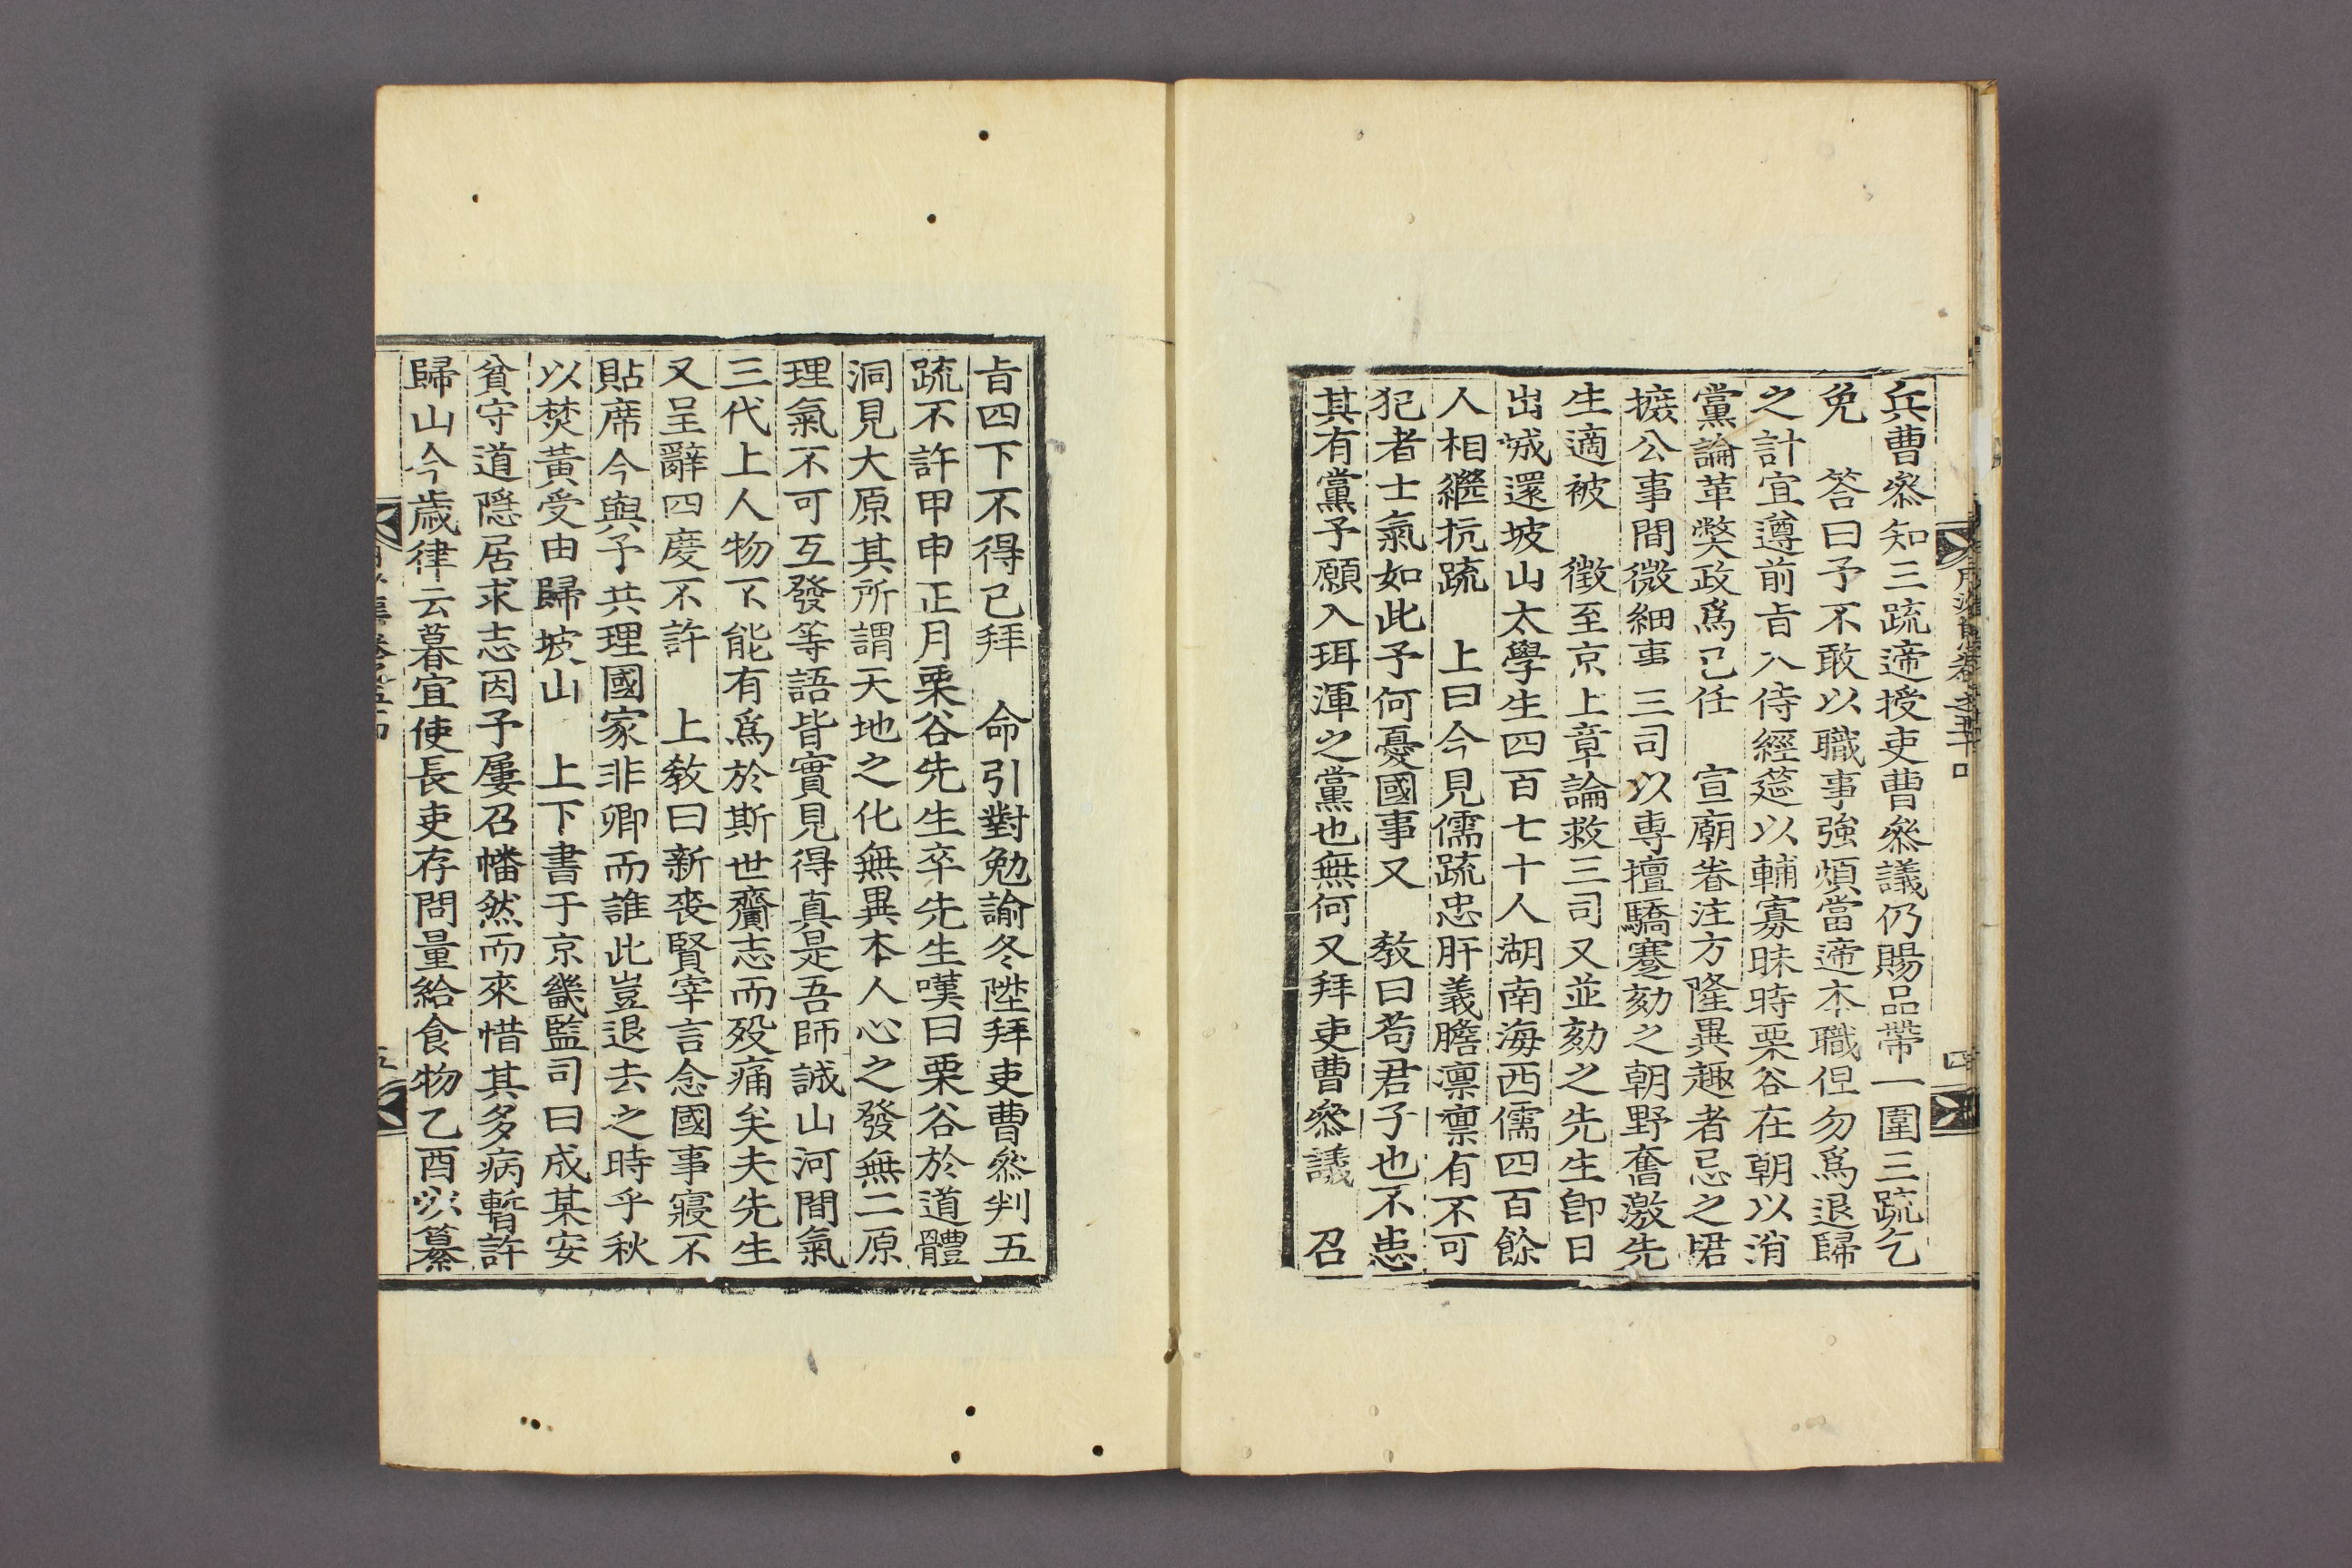 兵曹叅知三疏遆授吏曹叅議仍賜品帶一圍三䟽乞
免　答曰予不敢以職事強煩當遆本職但勿爲退歸
之計宜遵前旨入侍經筵以輔寡昧時栗谷在朝以消
黨論革獘政爲已任　宣廟眷注方隆異趣者忌之捃
摭公事間微細事三司以専擅驕蹇劾之朝野奮激先
生適被　徵至京上章論救三司又並劾之先生卽日
出城還坡山太學生四百七十人湖南海西儒四百餘
人相繼抗䟽　上曰今見儒䟽忠肝義膽凛凛有不可
犯者士氣如此予何憂國事又　敎曰苟君子也不患
其有黨予願入珥渾之黨也無何又拜吏曹叅議　召
旨四下不得已拜　命引對勉諭冬陞拜吏曹叅判五
䟽不許甲申正月栗谷先生卒先生嘆曰栗谷於道體
洞見大原其所謂天地之化無異本人心之發無二原
理氣不可互發等語皆實見得真是吾師誠山河間氣
三代上人物不能有爲於斯世齎志而歿痛矣夫先生
又呈辭四度不許　上敎曰新喪賢宰言念國事寢不
貼席今與予共理國家非卿而誰此豈退去之時乎秋
以焚黃受由歸坡山　上下書于京畿監司曰成某安
貧守道隱居求志因予屢召幡然而來惜其多病暫許
歸山今歲律云暮宜使長吏存問量給食物乙酉以纂